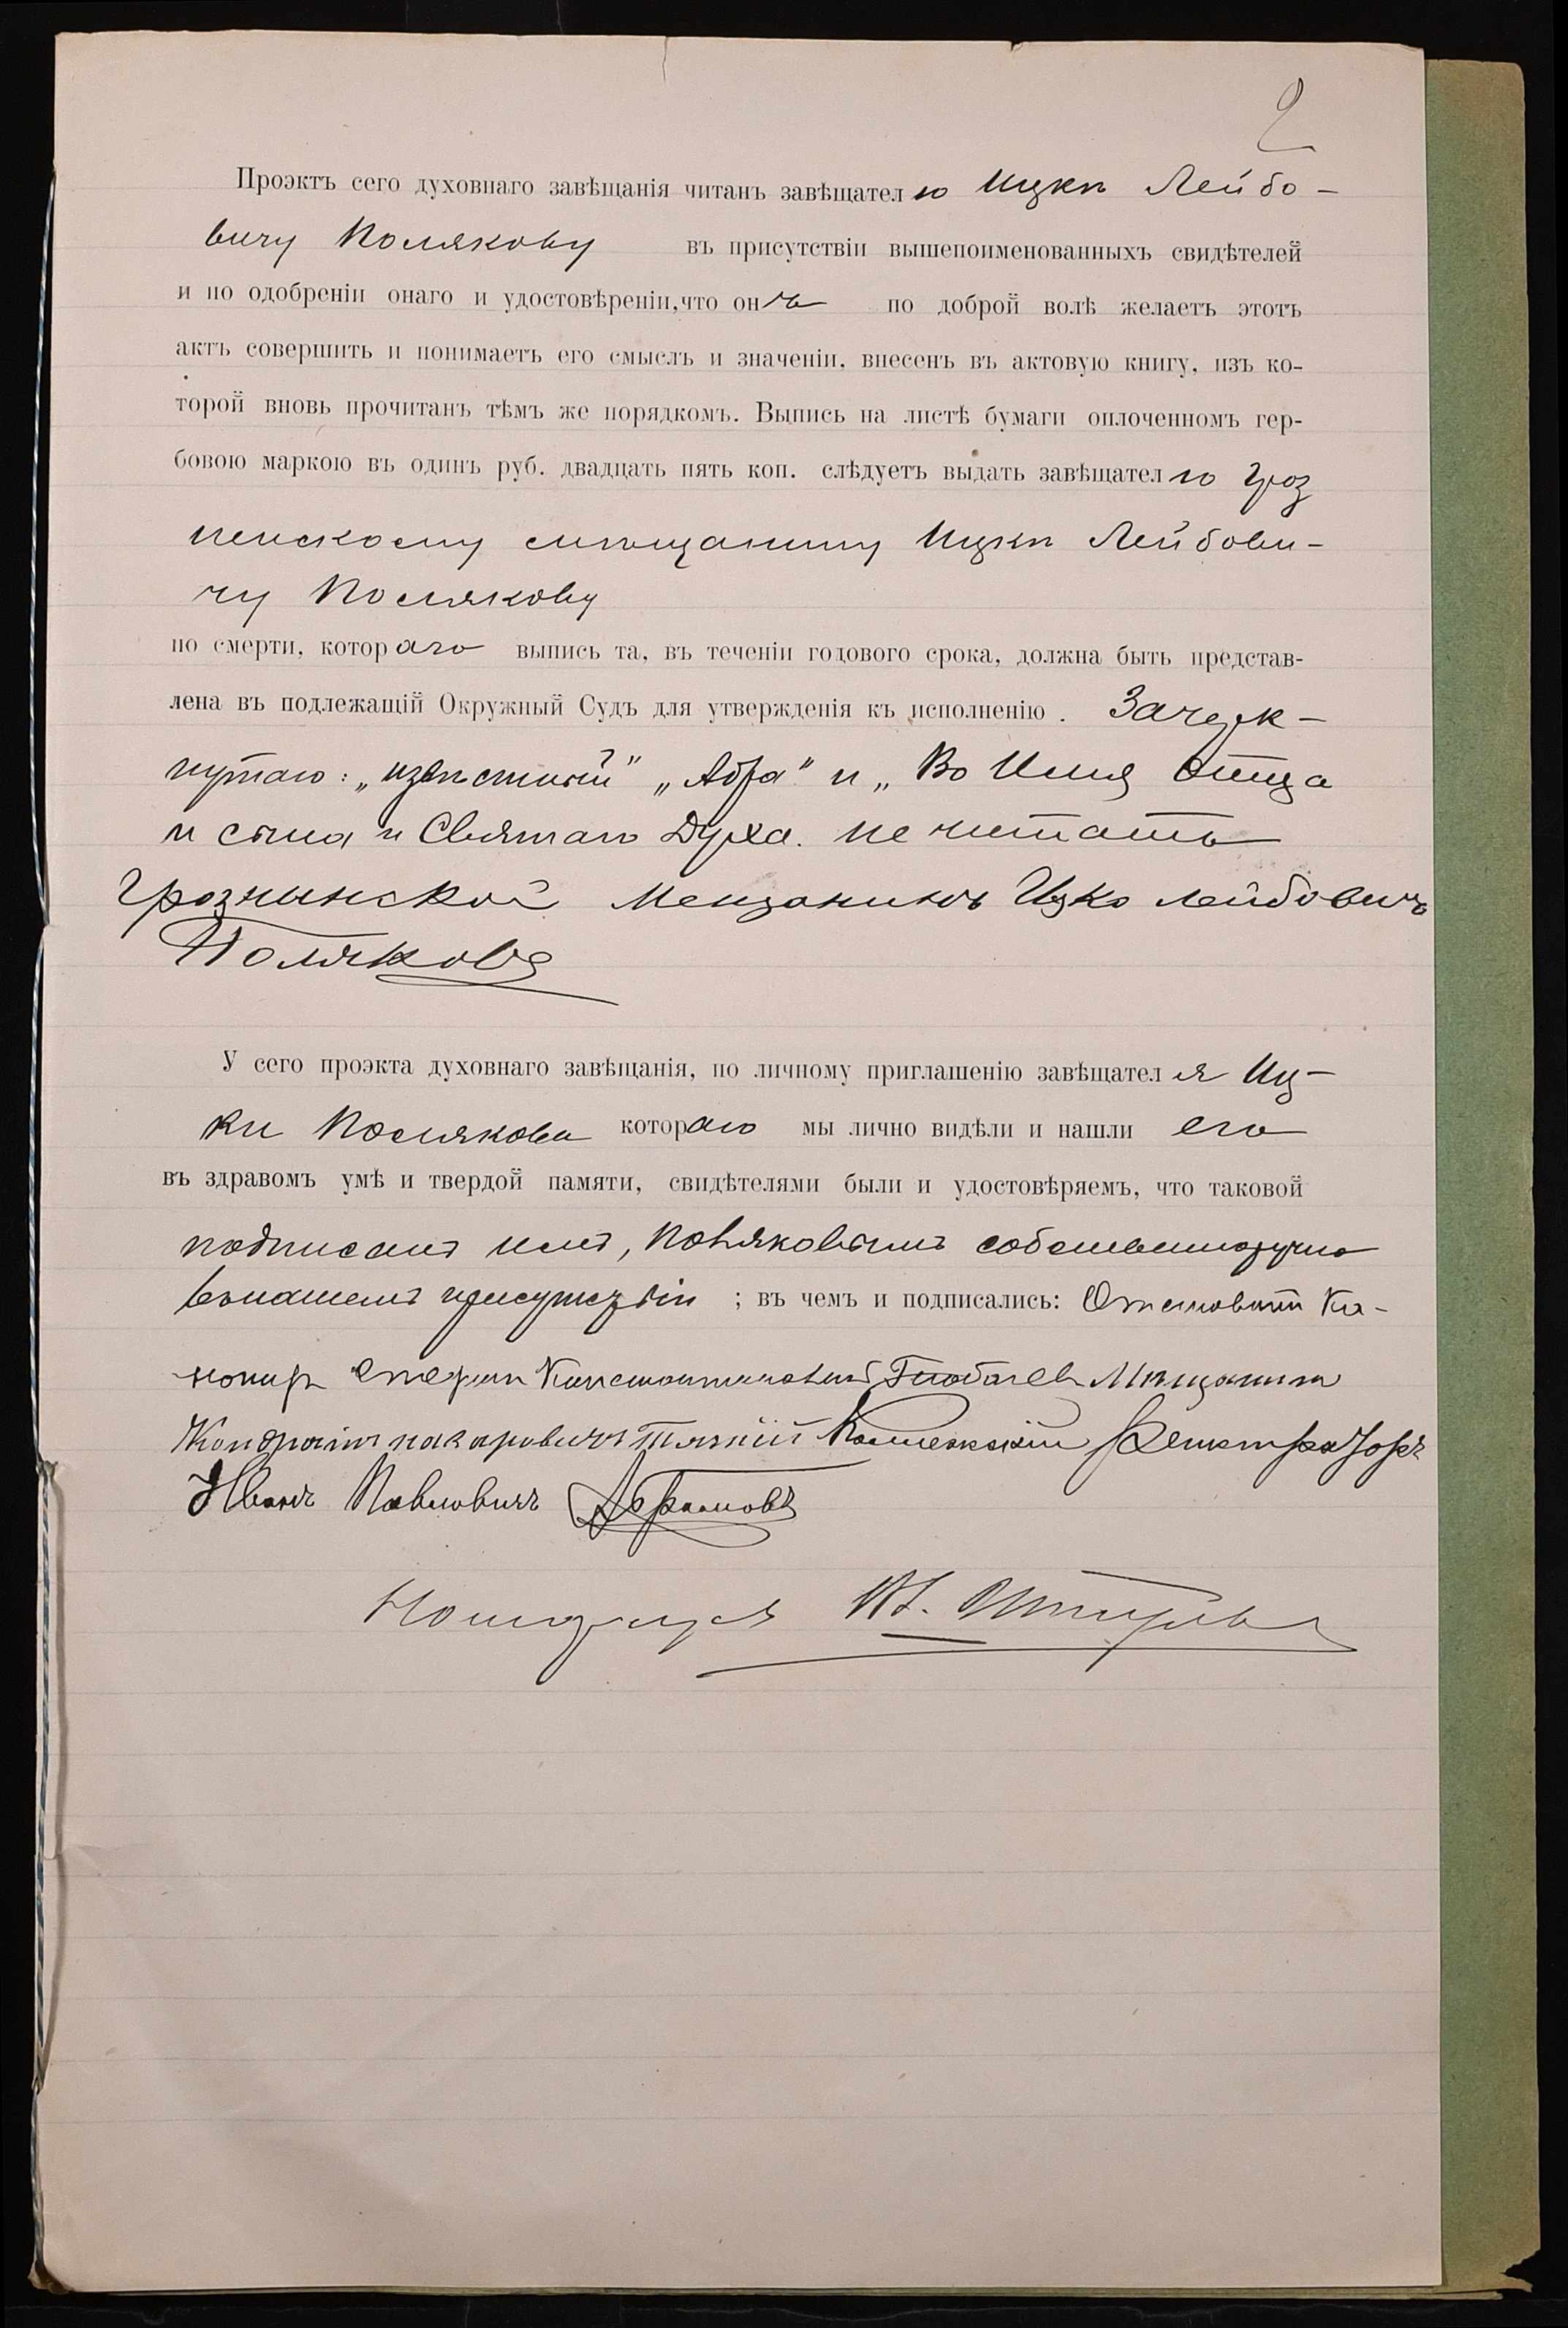 2
Проэктъ сего духовнаго завѣщанія читанъ завѣщателю Ицкѣ Лейбо-
вичу Полякову въ присутствіи вышепоименованныхъ свидѣтелей
и по одобреніи онаго и удостовѣреніи, что онъ по доброй волѣ желаетъ этотъ
актъ совершить и понимаетъ его смыслъ и значеніи, внесенъ въ актовую книгу, изъ ко-
торой вновь прочитанъ тѣмъ же порядкомъ. Выпись на листѣ бумаги оплоченномъ гер-
бовою маркою въ одинъ руб. двадцать пять коп. слѣдуетъ выдать завѣщателю Гроз
ненскому мѣщанину Ицкѣ Лейбови-
чу Полякову
по смерти, котораго выпись та, въ теченіи годового срока, должна быть представ-
лена въ подлежащій Окружный Судъ для утвержденія къ исполненію. Зачерк-
нутаго: „извѣстный" „Абра" и „Во Имя Отца
и сына и Святаго Духа. не читать
Грознынской Мещанинъ Ицко Лейбовичъ
Поляковъ
У сего проэкта духовнаго завѣщанія, по личному приглашенію завѣщателя Иц-
ки Полякова котораго мы лично видѣли и нашли его
въ здравомъ умѣ и твердой памяти, свидѣтелями были и удостовѣряемъ, что таковой
подписанъ имъ, Поляковымъ собственноручно
въ нашемъ присутствіи ; въ чемъ и подписались: Отставной Ка-
нониръ Константиновичъ Мѣщанинъ
Кондратъ Макаровичъ Коллежскій Регистраторъ
Иванъ Павловичъ Абрамовъ
Нотаріусъ